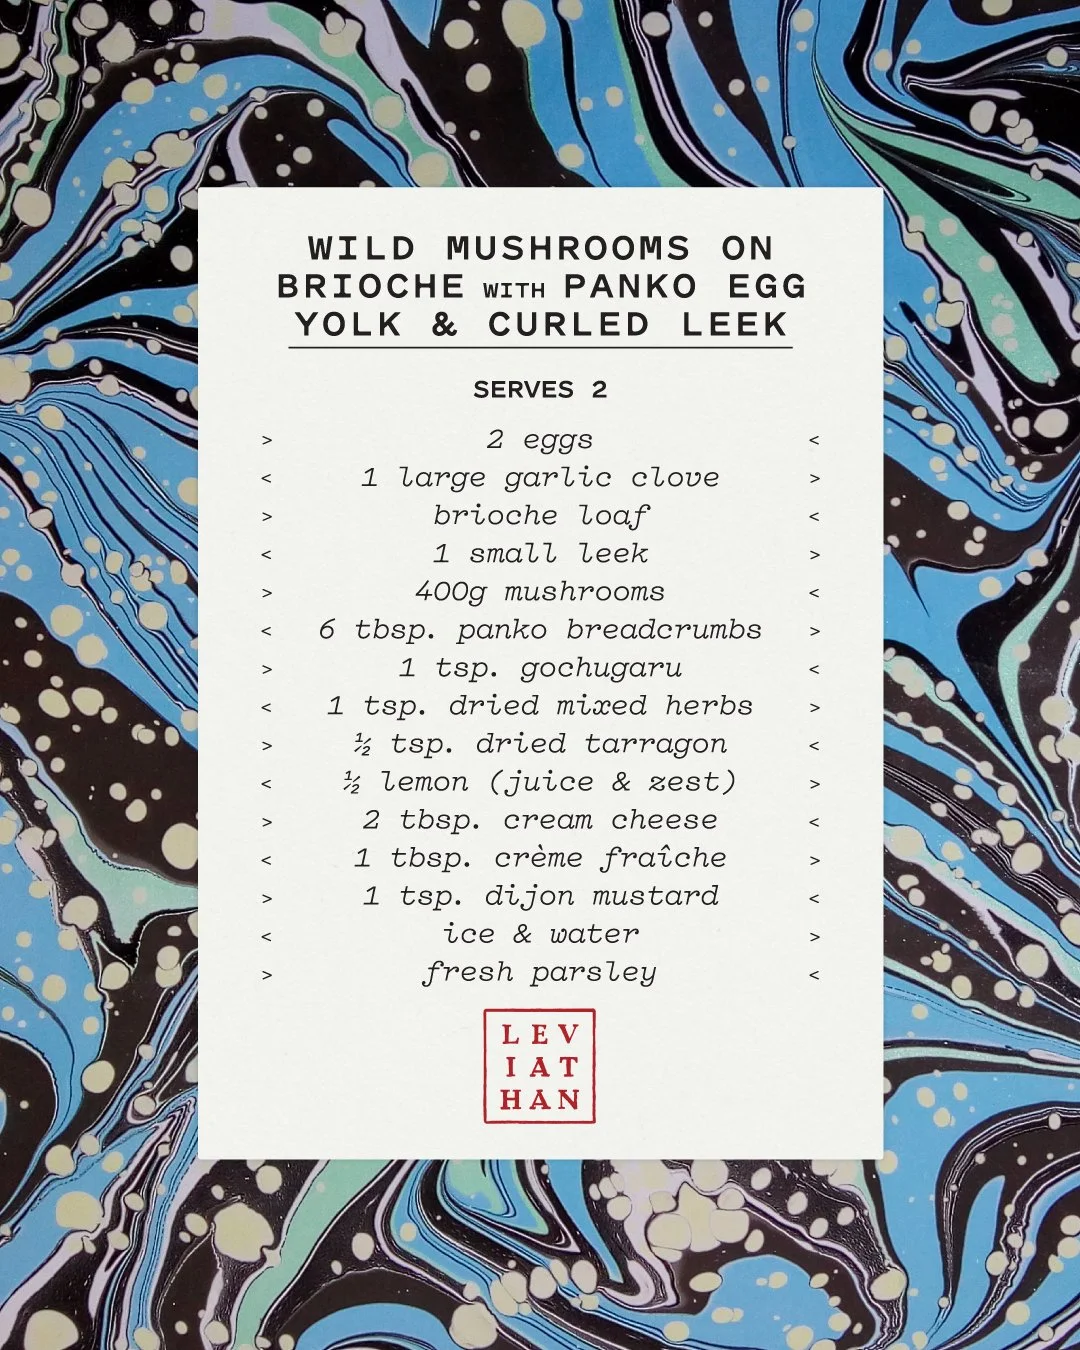 WILD MUSHROOMS ON
BRIOCHE WITH PANKO EGG
YOLK & CURLED LEEK
SERVES 2
> 2 eggs <
< 1 large garlic clove >
> brioche loaf <
< 1 small leek >
> 400g mushrooms <
< 6 tbsp. panko breadcrumbs >
> 1 tsp. gochugaru <
< 1 tsp. dried mixed herbs >
> ½ tsp. dried tarragon <
< ½ lemon (juice & zest) >
> 2 tbsp. cream cheese <
< 1 tbsp. crème fraîche >
> 1 tsp. dijon mustard <
< ice & water >
> fresh parsley <
LEV
IAT
HAN